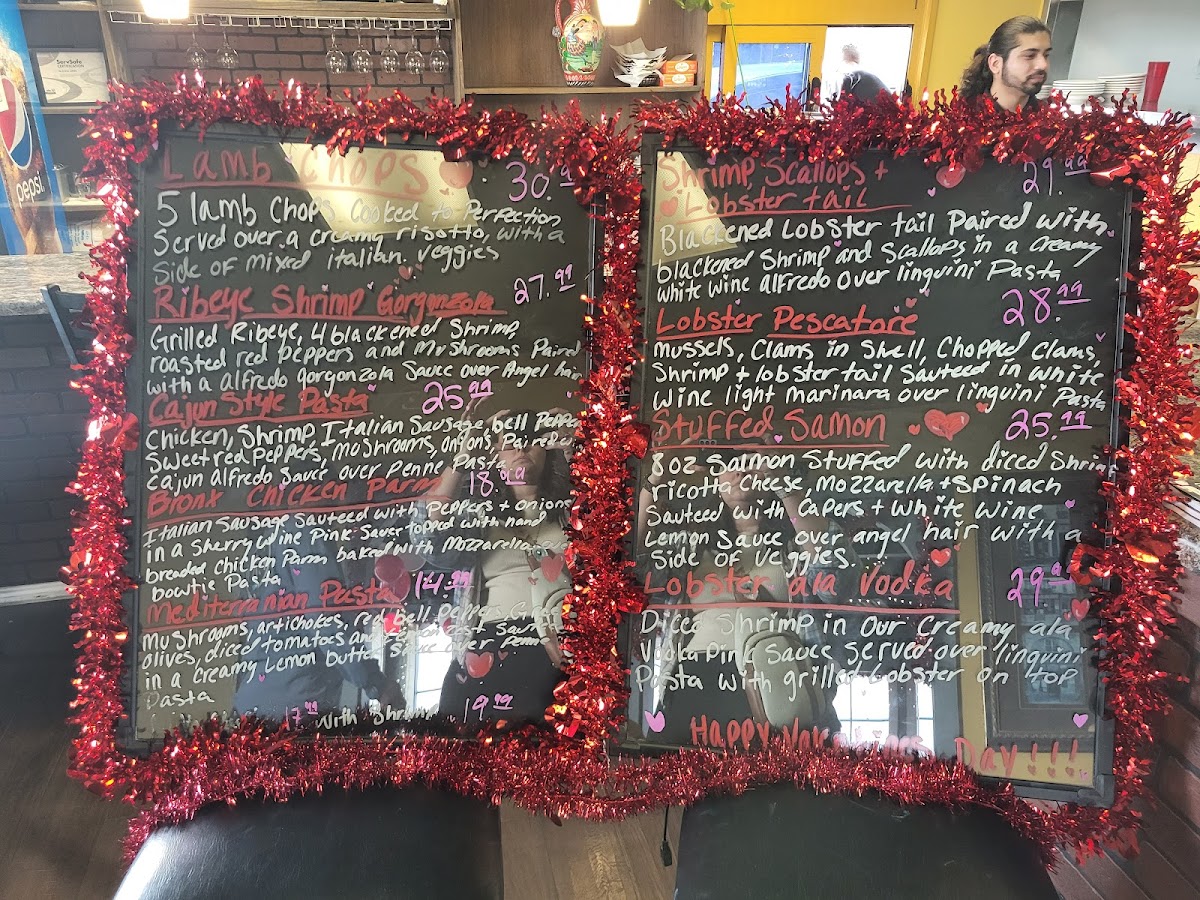 ServSafe
CERTIFICATION
pepsi
Lamb Chops 30.99
5 lamb Chops Cooked to Perfection
Served over a creamy risotto, with a
Side of mixed italian veggies
Ribeye Shrimp Gorgonzola 27.99
Grilled Ribeye, 4 blackened Shrimp,
roasted red peppers and Mushrooms Paired
with a alfredo gorgonzola Sauce over Angel hair
Cajun Style Pasta 25.99
Chicken, Shrimp, Italian Sausage, bell Pepper
Sweet red Peppers, mushrooms, onions, Paired
Cajun Alfredo Sauce over Penne Pasta
Bronx Chicken Parm 18.99
Italian Sausage Sauteed with Peppers + onions
in a Sherry Wine Pink Sauce Topped with hand
breaded Chicken Parm baked with Mozzarella
bowtie Pasta
Mediterranian Pasta 14.99
Mushrooms, artichokes, red bell Peppers,
olives, diced tomatoes and
in a creamy Lemon butter Sauce over Penne
Pasta
17.99 with Shrimp 19.99
Shrimp, Scallops + 29.99
Lobster tail
Blackened Lobster tail Paired with
blackened Shrimp and Scallops in a Creamy
White wine alfredo over linguini Pasta
Lobster Pescatore 28.99
Mussels, Clams in Shell, Chopped Clams,
Shrimp + lobster tail Sauteed in white
Wine light Marinara over linguini Pasta
Stuffed Samon 25.99
8oz Salmon Stuffed with diced Shrimp
ricotta Cheese, Mozzarella + Spinach
Sauteed with Capers + White Wine
Lemon Sauce over angel hair with a
Side of Veggies.
Lobster ala Vodka 29.99
Dice Shrimp in Our Creamy ala
Vodka Pink Sauce Served over linguini
Pasta with grilled Lobster on top
Happy Valentines Day!!!